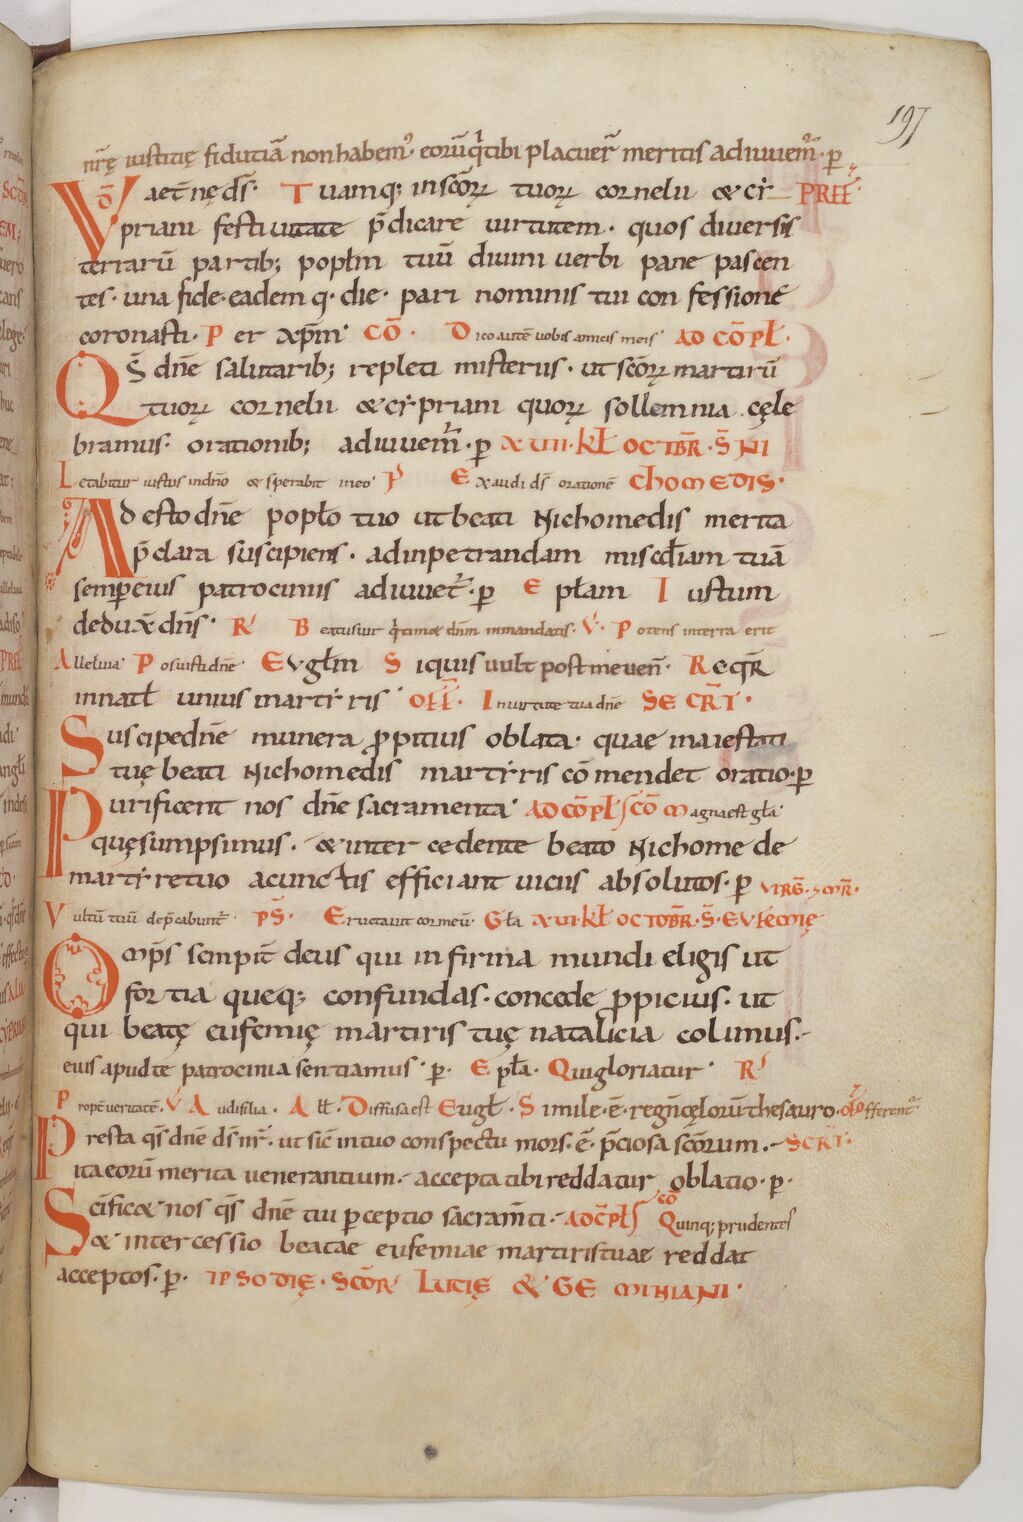 197
nr̄ę iustitię fidutiā non habem᷒· eorū q̄ tibi placuer̄ meritis adiuuem̄᷒· ꝑ
VD̄ aet̄nę ds̄· Tuamq; in sc̄oꝝ tuoꝝ cornelii & cẏ PREF̄·
priani festiuitate p̄dicare uirtutem· quos diuersis
terrarū partib; popłm tuū diuini uerbi pane pascen
tes· una fide· eademq· die· pari nominis tui confessione
coronasti· Per xp̄m· CŌ· Dico autē uobis amicis meis· AD CŌPŁ·
Qs̄ dn̄e salutarib; repleti misteriis· ut sc̄oꝝ martirū
tuoꝝ cornelii & cẏpriani quoꝝ sollemnia cęle
bramus· orationib; adiuuem̄᷒· ꝑ XVII· KŁ OCTBR̄· S̄ NI
Letabitur iustus in dn̄o & sperabit in eo· P̄ Exaudi ds̄ orationē CHOMEDIS·
Adesto dn̄e popło tuo ut beati Nichomedis merita
p̄clara suscipiens· ad inpetrandam misc̄diam tuā
semp̲ eius patrociniis adiuuet᷒r· ꝑ Epłam Iustum
deduxᷓ dn̄s· R̸ Beatus uir q̄ timet dn̄m in mandatis· V̸· Potens in terra erit
Alleluia· Posuisti dn̄e· Eugłm Siquis uult post me ueń· Reqr̄
in natł unius martẏris· OFF̄· In uirtute tua dn̄e SECRT̄·
Suscipe dn̄e munera ꝓpitius oblata· quae maiestati
tuę beati Nichomedis martẏris cōmendet oratio· ꝑ
Purificent nos dn̄e sacramenta· AD CŌPŁ CŌ Magna est gła·
quę sumpsimus· & intercedente beato Nichomede
martẏre tuo a cunctis efficiant uiciis absolutos· ꝑ VIRḠ· & MR̄·
Vultū tuū dep̄cabunt᷒r· PS̄· Eructauit cor meū· Gła XVI· KŁ OCTOBR̄· S̄· EVFEMIĘ
Omp̄s sempit̄ deus qui infirma mundi eligis ut
fortia queq; confundas· concede ꝓpicius· ut
qui beatę eufemię martiris tuę natalicia colimus·
eius apud te patrocinia sentiamus· ꝑ· Epła· Qui gloriatur· R̸
Propť ueritatē· V̸ Audi filia· Ałł· Diffusa est Eugł· Simile· ē· regn̄ cęlorū thesauro· OF̄ Offerent᷒r
Presta qs̄ dn̄e ds̄ nr̄· ut sic̄ in tuo conspectu mors· ē· p̄ciosa sc̄orum· SCRT̄·
ita eorū merita uenerantium· accepta tibi reddatur oblatio· ꝑ·
Sc̄ificet nos qs̄ dn̄e tui ꝑceptio sacram̄ti· AD C̄PŁ CŌ Quinq; prudentes
& intercessio beatae eufemiae martiris tuae reddat
acceptos· ꝑ· IPSO DIĘ· SCŌR LUCIĘ & GEMINIANI·